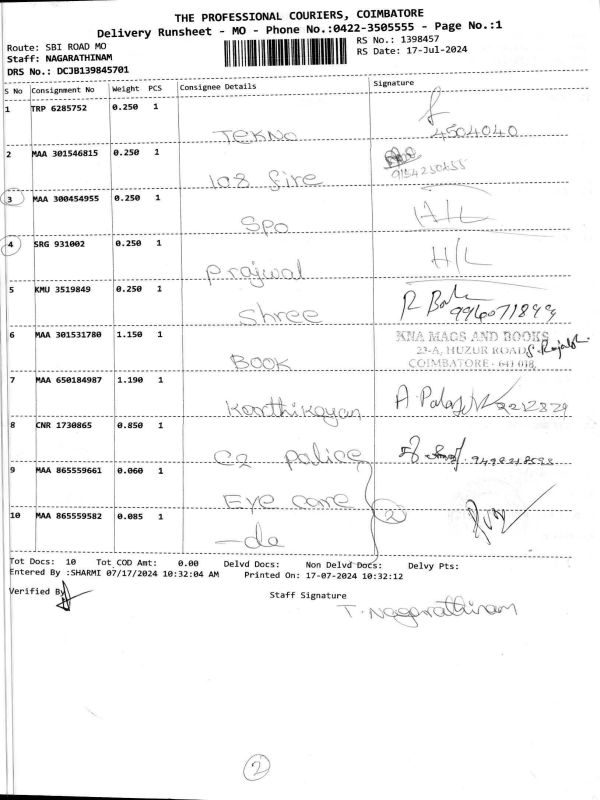 THE PROFESSIONAL COURIERS, COIMBATORE
Delivery Runsheet - MO - Phone No.:0422-3505555 - Page No.:1
Route: SBI ROAD MO RS No.: 1398457
Staff: NAGARATHINAM RS Date: 17-Jul-2024
DRS No.: DCJB139845701
S No Consignment No Weight PCS Consignee Details Signature
1 TRP 6285752 0.250 1
Tekno 4504040
2 MAA 301546815 0.250 1
108 fire
3 MAA 300454955 0.250 1 H/L
Spo
4 SRG 931002 0.250 1 H/L
Prajwal
5 KMU 3519849 0.250 1
Shree
6 MAA 301531780 1.150 1 KNA MAGS AND BOOKS
23-A, HUZUR ROAD
BOOK COIMBATORE - 641 018.
7 MAA 650184987 1.190 1
Karthikayan
8 CNR 1730865 0.850 1
C2 police
9 MAA 865559661 0.060 1
Eye care 2
10 MAA 865559582 0.085 1
-do
Tot Docs: 10 Tot COD Amt: 0.00 Delvd Docs: Non Delvd Docs: Delvy Pts:
Entered By :SHARMI 07/17/2024 10:32:04 AM Printed On: 17-07-2024 10:32:12
Verified By Staff Signature
T. Nagarathinam
2